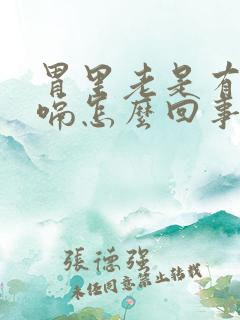 胃里老是有
喘怎麼回事
張德強
未经同意禁止转载